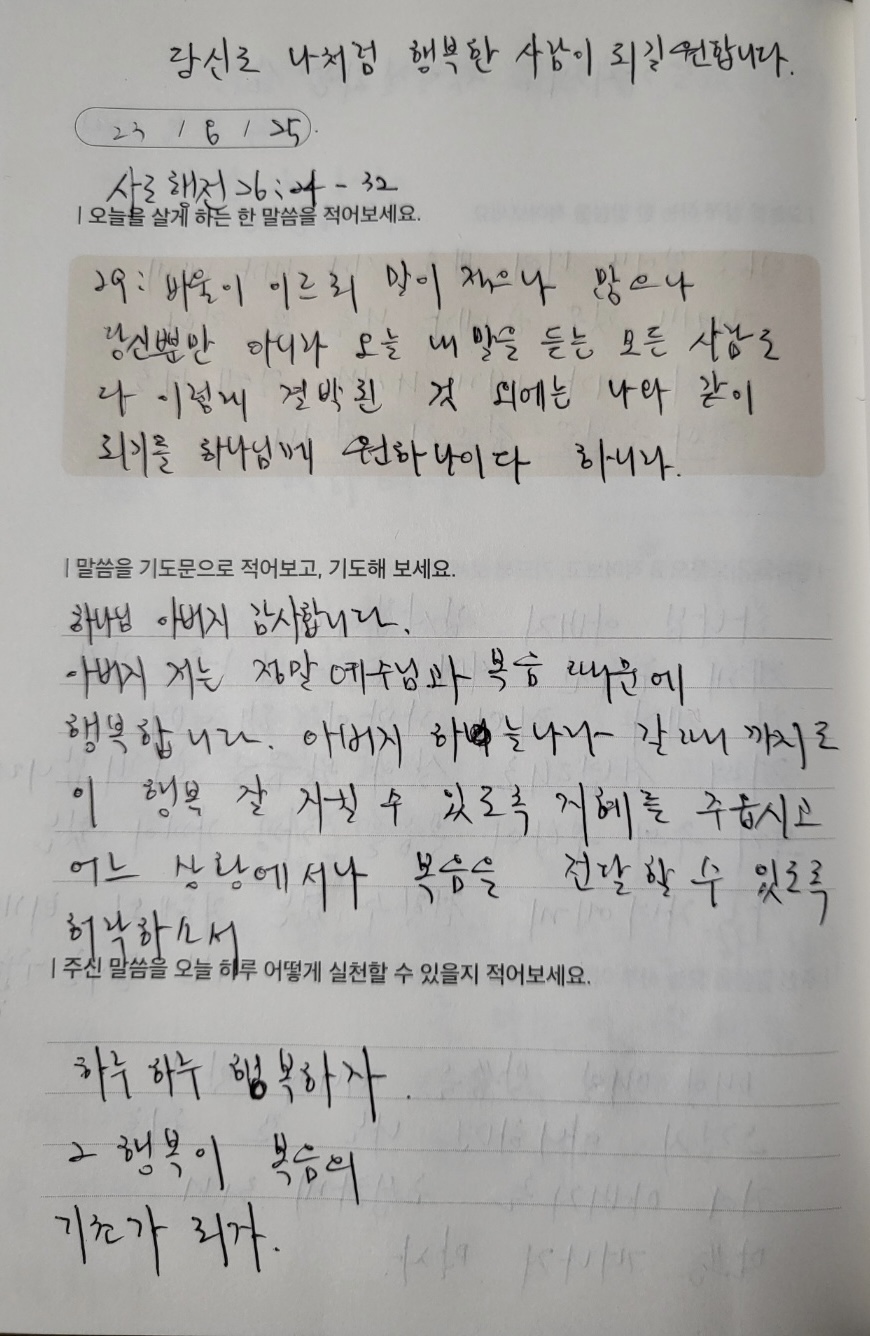 당신도 나처럼 행복한 사람이 되길 원합니다.
23 / 8 / 25.
사도행전 26:24 - 32
| 오늘을 살게 하는 한 말씀을 적어보세요.
29: 바울이 이르되 말이 적으나 많으나
당신뿐만 아니라 오늘 내 말을 듣는 모든 사람도
다 이렇게 결박된 것 외에는 나와 같이
되기를 하나님께 원하나이다 하니라.
| 말씀을 기도문으로 적어보고, 기도해 보세요.
하나님 아버지 감사합니다.
아버지 저는 정말 예수님과 복음 때문에
행복합니다. 아버지 하늘나라 갈 때 까지도
이 행복 잘 지킬 수 있도록 지혜를 주옵시고
어느 상황에서나 복음을 전달할 수 있도록
허락하소서
| 주신 말씀을 오늘 하루 어떻게 실천할 수 있을지 적어보세요.
하루 하루 행복하자.
그 행복이 복음의
기초가 되자.